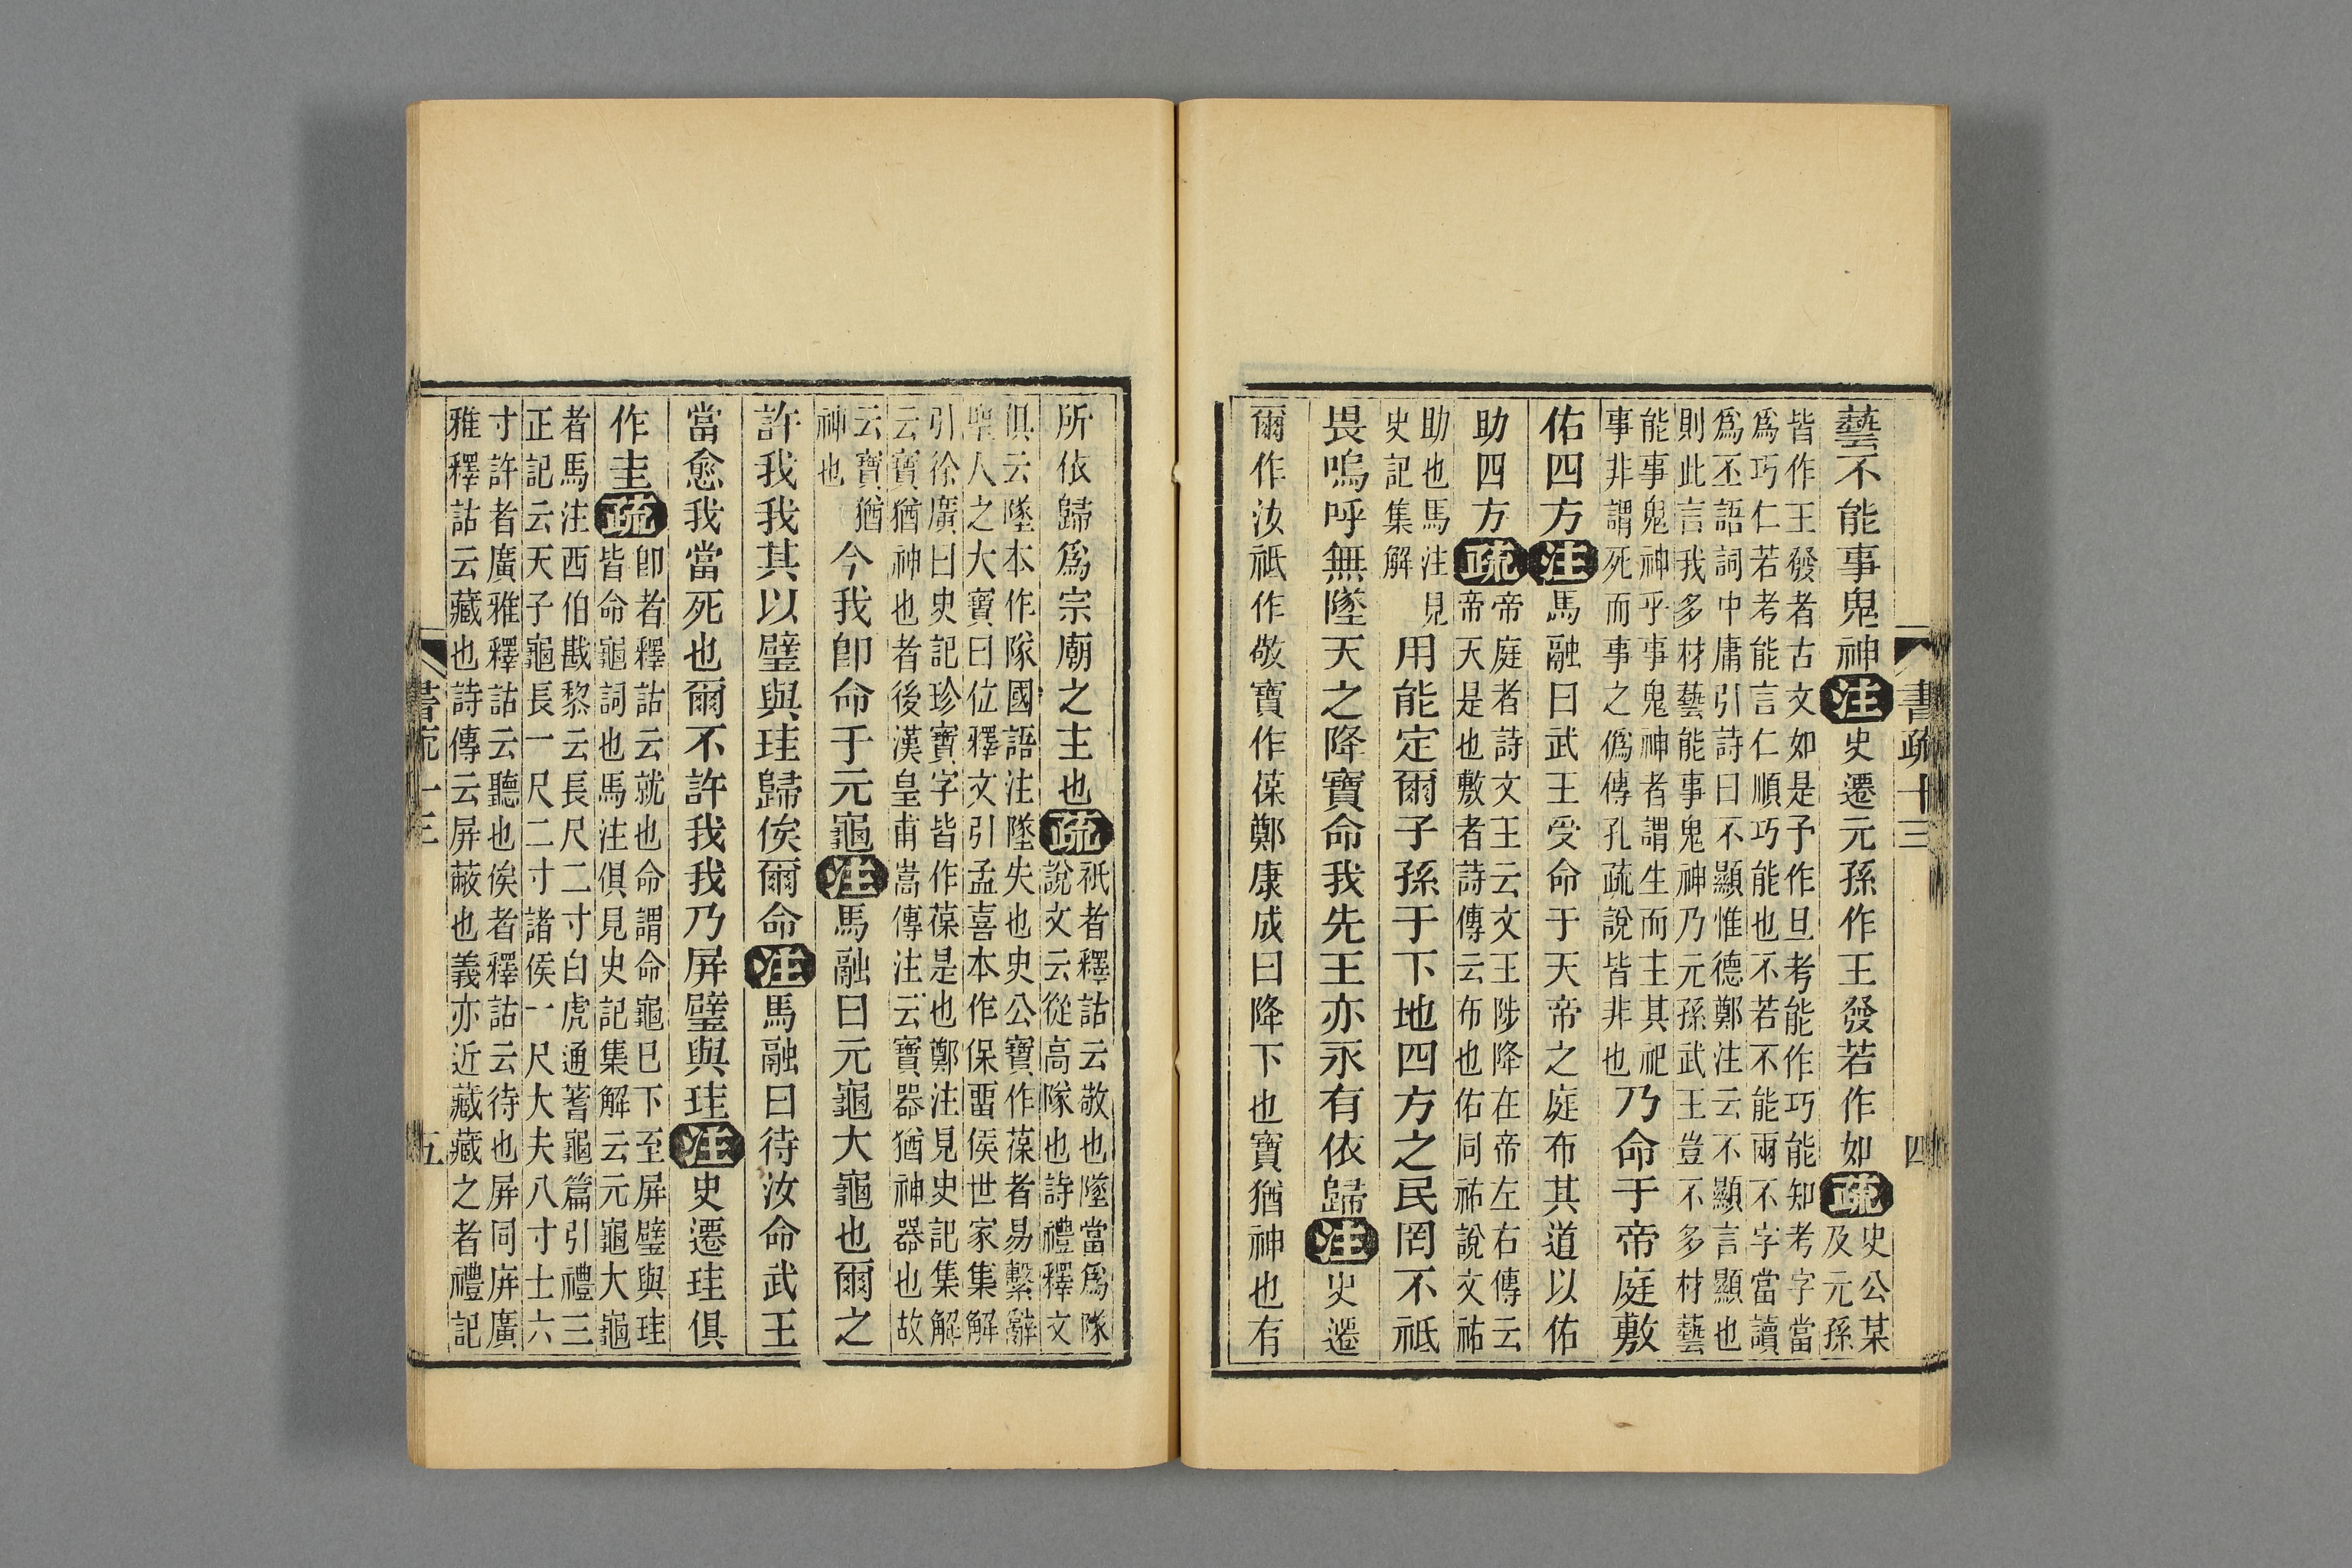 書疏十三
四
藝不能事鬼神注史遷元孫作王發若作如疏史公某
及元孫
皆作王發者古文如是予作旦考能作巧能知考字當
爲巧仁若考能言仁順巧能也不若不能兩不字當讀
爲丕語詞中庸引詩曰不顯惟德鄭注云不顯言顯也
則此言我多材藝能事鬼神乃元孫武王豈不多材藝
能事鬼神乎事鬼神者謂生而主其祀
事非謂死而事之僞傳孔疏說皆非也
乃命于帝庭敷
佑四方注馬融曰武王受命于天帝之庭布其道以佑
助四方疏帝庭者詩文王云文王陟降在帝左右傳云
帝天是也敷者詩傳云布也佑同祐說文祐
助也馬注見
史記集解
用能定爾子孫于下地四方之民罔不祗
畏嗚呼無墜天之降寶命我先王亦永有依歸注史遷
爾作汝祗作敬寶作葆鄭康成曰降下也寶猶神也有
所依歸爲宗廟之主也疏祗者釋詁云敬也墜當爲隊
說文云從高隊也詩禮釋文
俱云墜本作隊國語注墜失也史公寶作葆者易繫辭
聖人之大寶曰位釋文引孟喜本作保畱侯世家集解
引徐廣曰史記珍寶字皆作葆是也鄭注見史記集解
云寶猶神也者後漢皇甫嵩傳注云寶器猶神器也故
云寶猶
神也
今我卽命于元龜注馬融曰元龜大龜也爾之
許我我其以璧與珪歸俟爾命注馬融曰待汝命武王
當愈我當死也爾不許我我乃屏璧與珪注史遷珪俱
作圭疏卽者釋詁云就也命謂命龜已下至屏璧與珪
皆命龜詞也馬注俱見史記集解云元龜大龜
者馬注西伯戡黎云長尺二寸白虎通蓍龜篇引禮三
正記云天子龜長一尺二寸諸侯一尺大夫八寸士六
寸許者廣雅釋詁云聽也俟者釋詁云待也屏同庰廣
雅釋詁云藏也詩傳云屏蔽也義亦近藏藏之者禮記
書疏十三
五